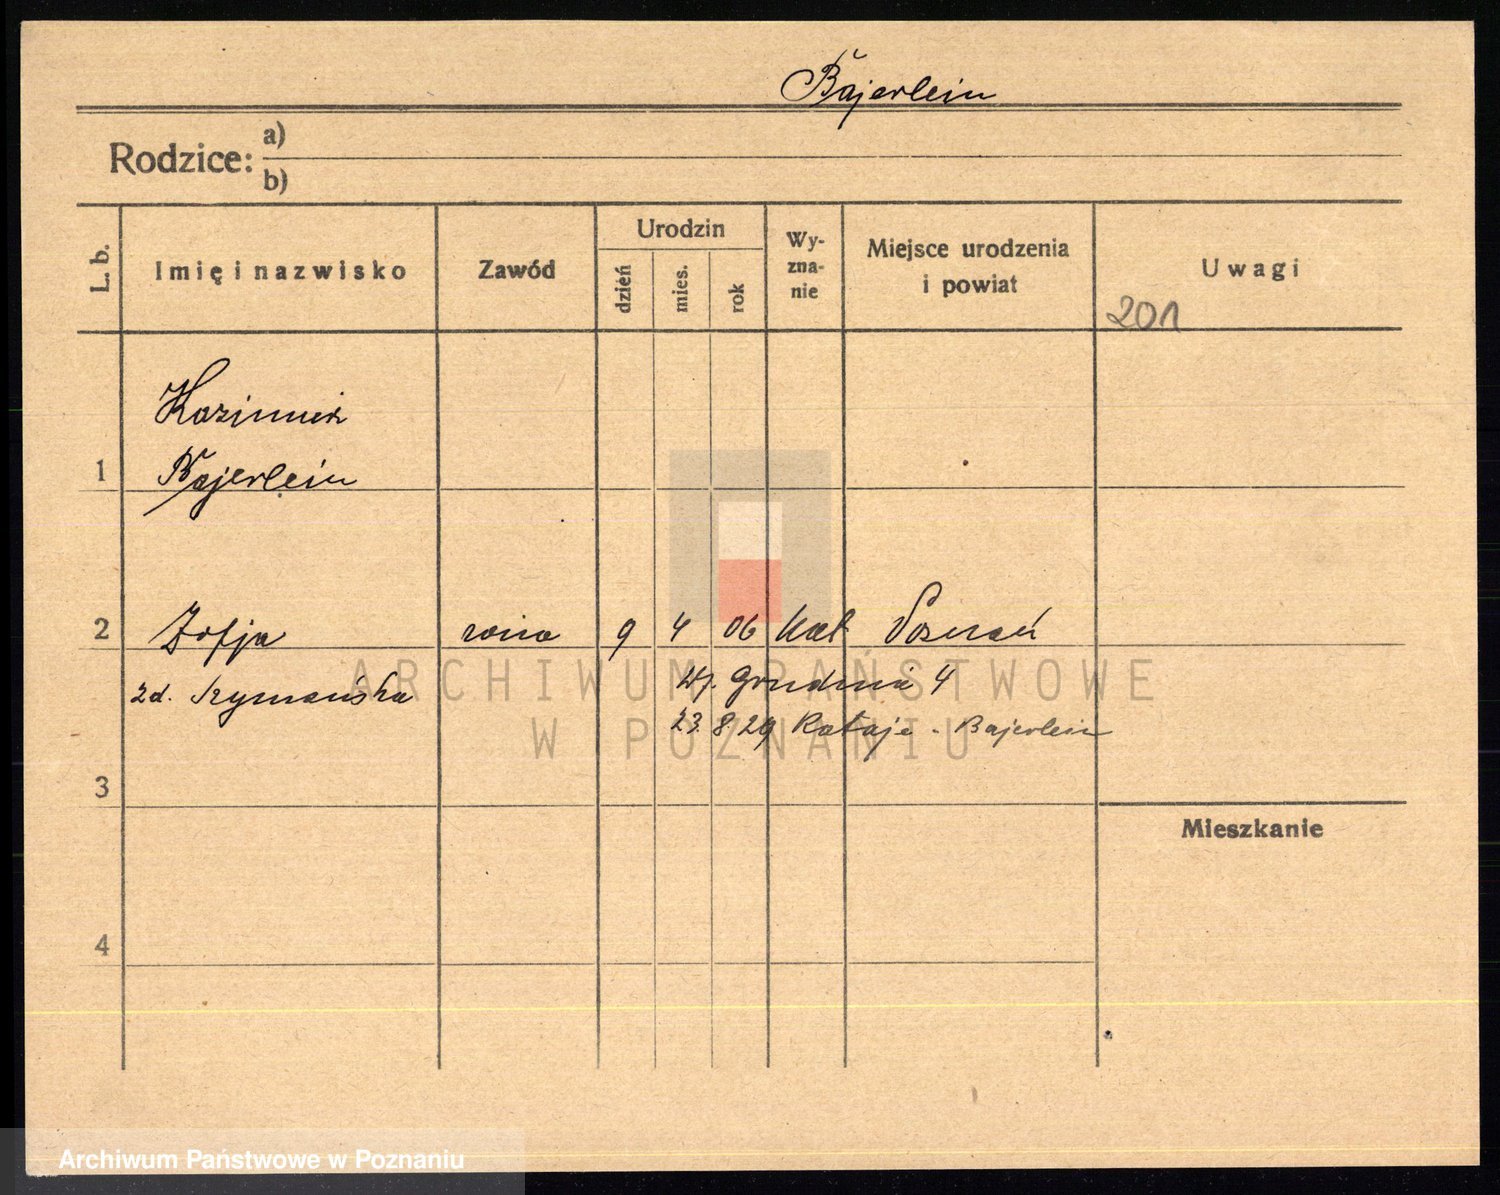 Bajerlein
Rodzice: a)
b)
L. b.
Imię i nazwisko
Zawód
Urodzin
dzień
mies.
rok
Wy-
zna-
nie
Miejsce urodzenia
i powiat
Uwagi
201
Kazimierz
1 Bajerlein
2 Zofja żona 9 4 06 kat Poznań
zd. Szymańska Grudnia 4
23. 8. 29 Rataje - Bajerlein
3
Mieszkanie
4
ARCHIWUM PAŃSTWOWE
W POZNANIU
Archiwum Państwowe w Poznaniu